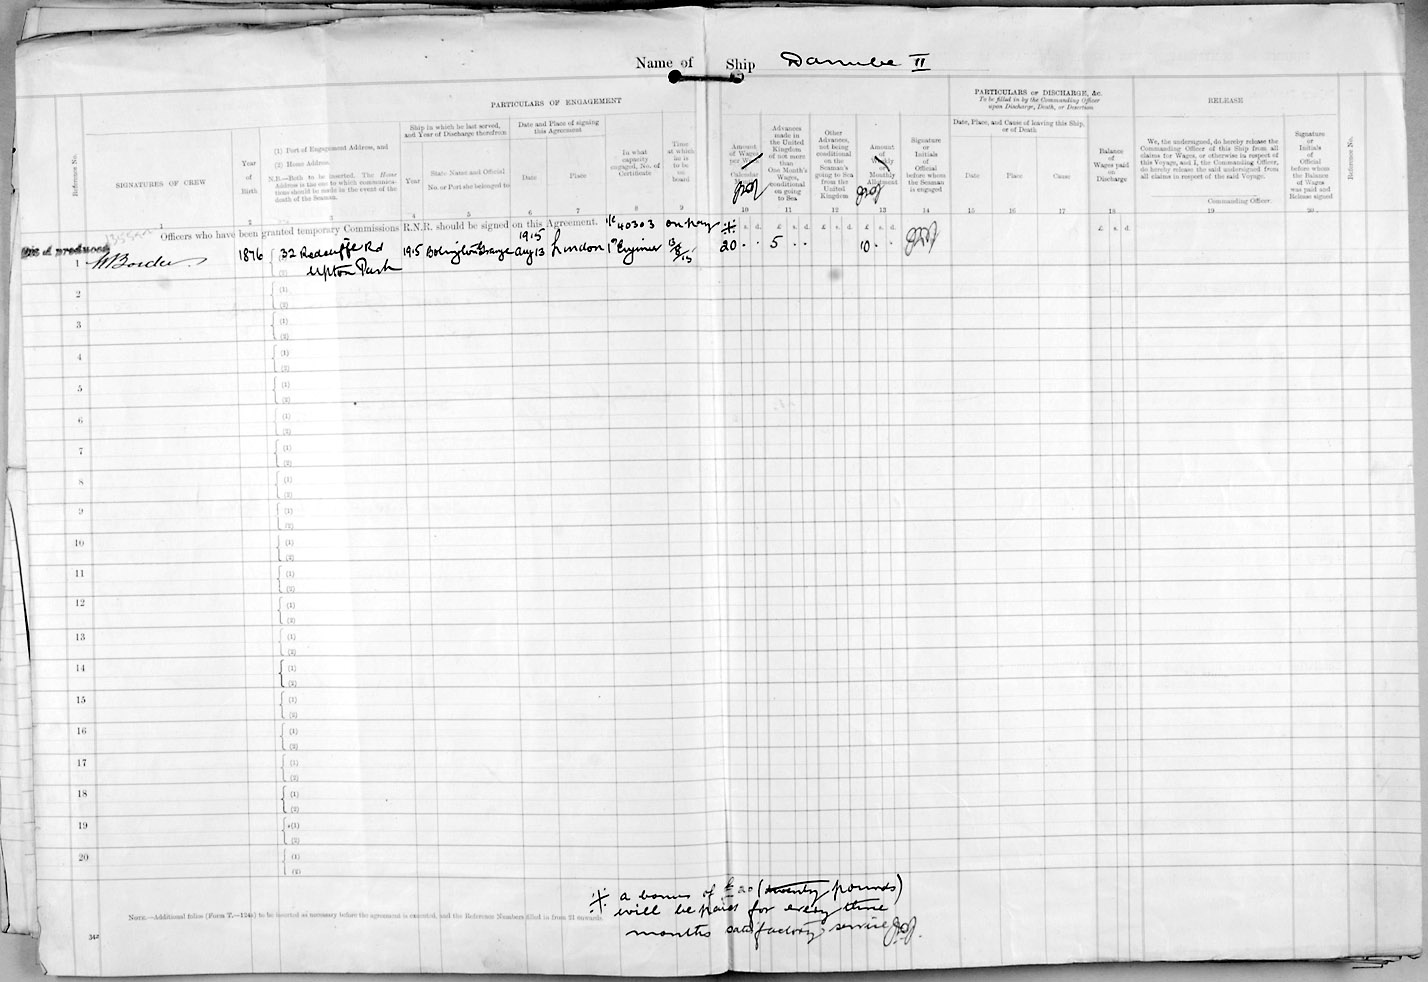 Name of Ship Danube II
PARTICULARS OF ENGAGEMENT
PARTICULARS OF DISCHARGE, &c.
To be filled in by the Commanding Officer
upon Discharge, Death, or Desertion
RELEASE
Reference No.
SIGNATURES OF CREW
Year
of
Birth
(1) Port of Engagement Address, and
(2) Home Address.
N.B.—Both to be inserted. The Home
Address is the one to which communica-
tions should be made in the event of the
death of the Seaman.
Ship in which he last served,
and Year of Discharge therefrom
Year
State Name and Official
No. or Port she belonged to
Date and Place of signing
this Agreement
Date
Place
In what
capacity
engaged, No. of
Certificate
Time
at which
he is
to be
on
board
Amount
of Wages
per Week
Calendar
Month
Advances
made in
the United
Kingdom
of not more
than
One Month's
Wages,
conditional
on going
to Sea
Other
Advances,
not being
conditional
on the
Seaman's
going to Sea
from the
United
Kingdom
Amount
of
Weekly
Monthly
Allotment
Signature
or
Initials
of
Official
before whom
the Seaman
is engaged
Date, Place, and Cause of leaving this Ship,
or of Death
Date
Place
Cause
Balance
of
Wages paid
on
Discharge
We, the undersigned, do hereby release the
Commanding Officer of this Ship from all
claims for Wages, or otherwise in respect of
this Voyage, and I, the Commanding Officer,
do hereby release the said undersigned from
all claims in respect of the said Voyage.
Commanding Officer.
Signature
or
Initials
of
Official
before whom
the Balance
of Wages
was paid and
Release signed
Reference No.
1 2 3 4 5 6 7 8 9 10 11 12 13 14 15 16 17 18 19 20
Officers who have been granted temporary Commissions R.N.R. should be signed on this Agreement.
£ s. d. £ s. d. £ s. d. £ s. d. £ s. d.
Dis. A. produced
1 1876 32 Redcliffe Rd 1915 1915 Aug 13 London 40303 1st Engineer on pay 13/8/15 ※ 20 - - 5 - - 10 - -
Upton Park
(1)
2 (2)
(1)
3 (2)
(1)
4 (2)
(1)
5 (2)
(1)
6 (2)
(1)
7 (2)
(1)
8 (2)
(1)
9 (2)
(1)
10 (2)
(1)
11 (2)
(1)
12 (2)
(1)
13 (2)
(1)
14 (2)
(1)
15 (2)
(1)
16 (2)
(1)
17 (2)
(1)
18 (2)
(1)
19 (2)
(1)
20 (2)
※ a bonus of £20 (twenty pounds)
will be paid for every three
months satisfactory service
NOTE.—Additional folios (Form T.—124a) to be inserted as necessary before the agreement is executed, and the Reference Numbers filled in from 21 onwards.
342